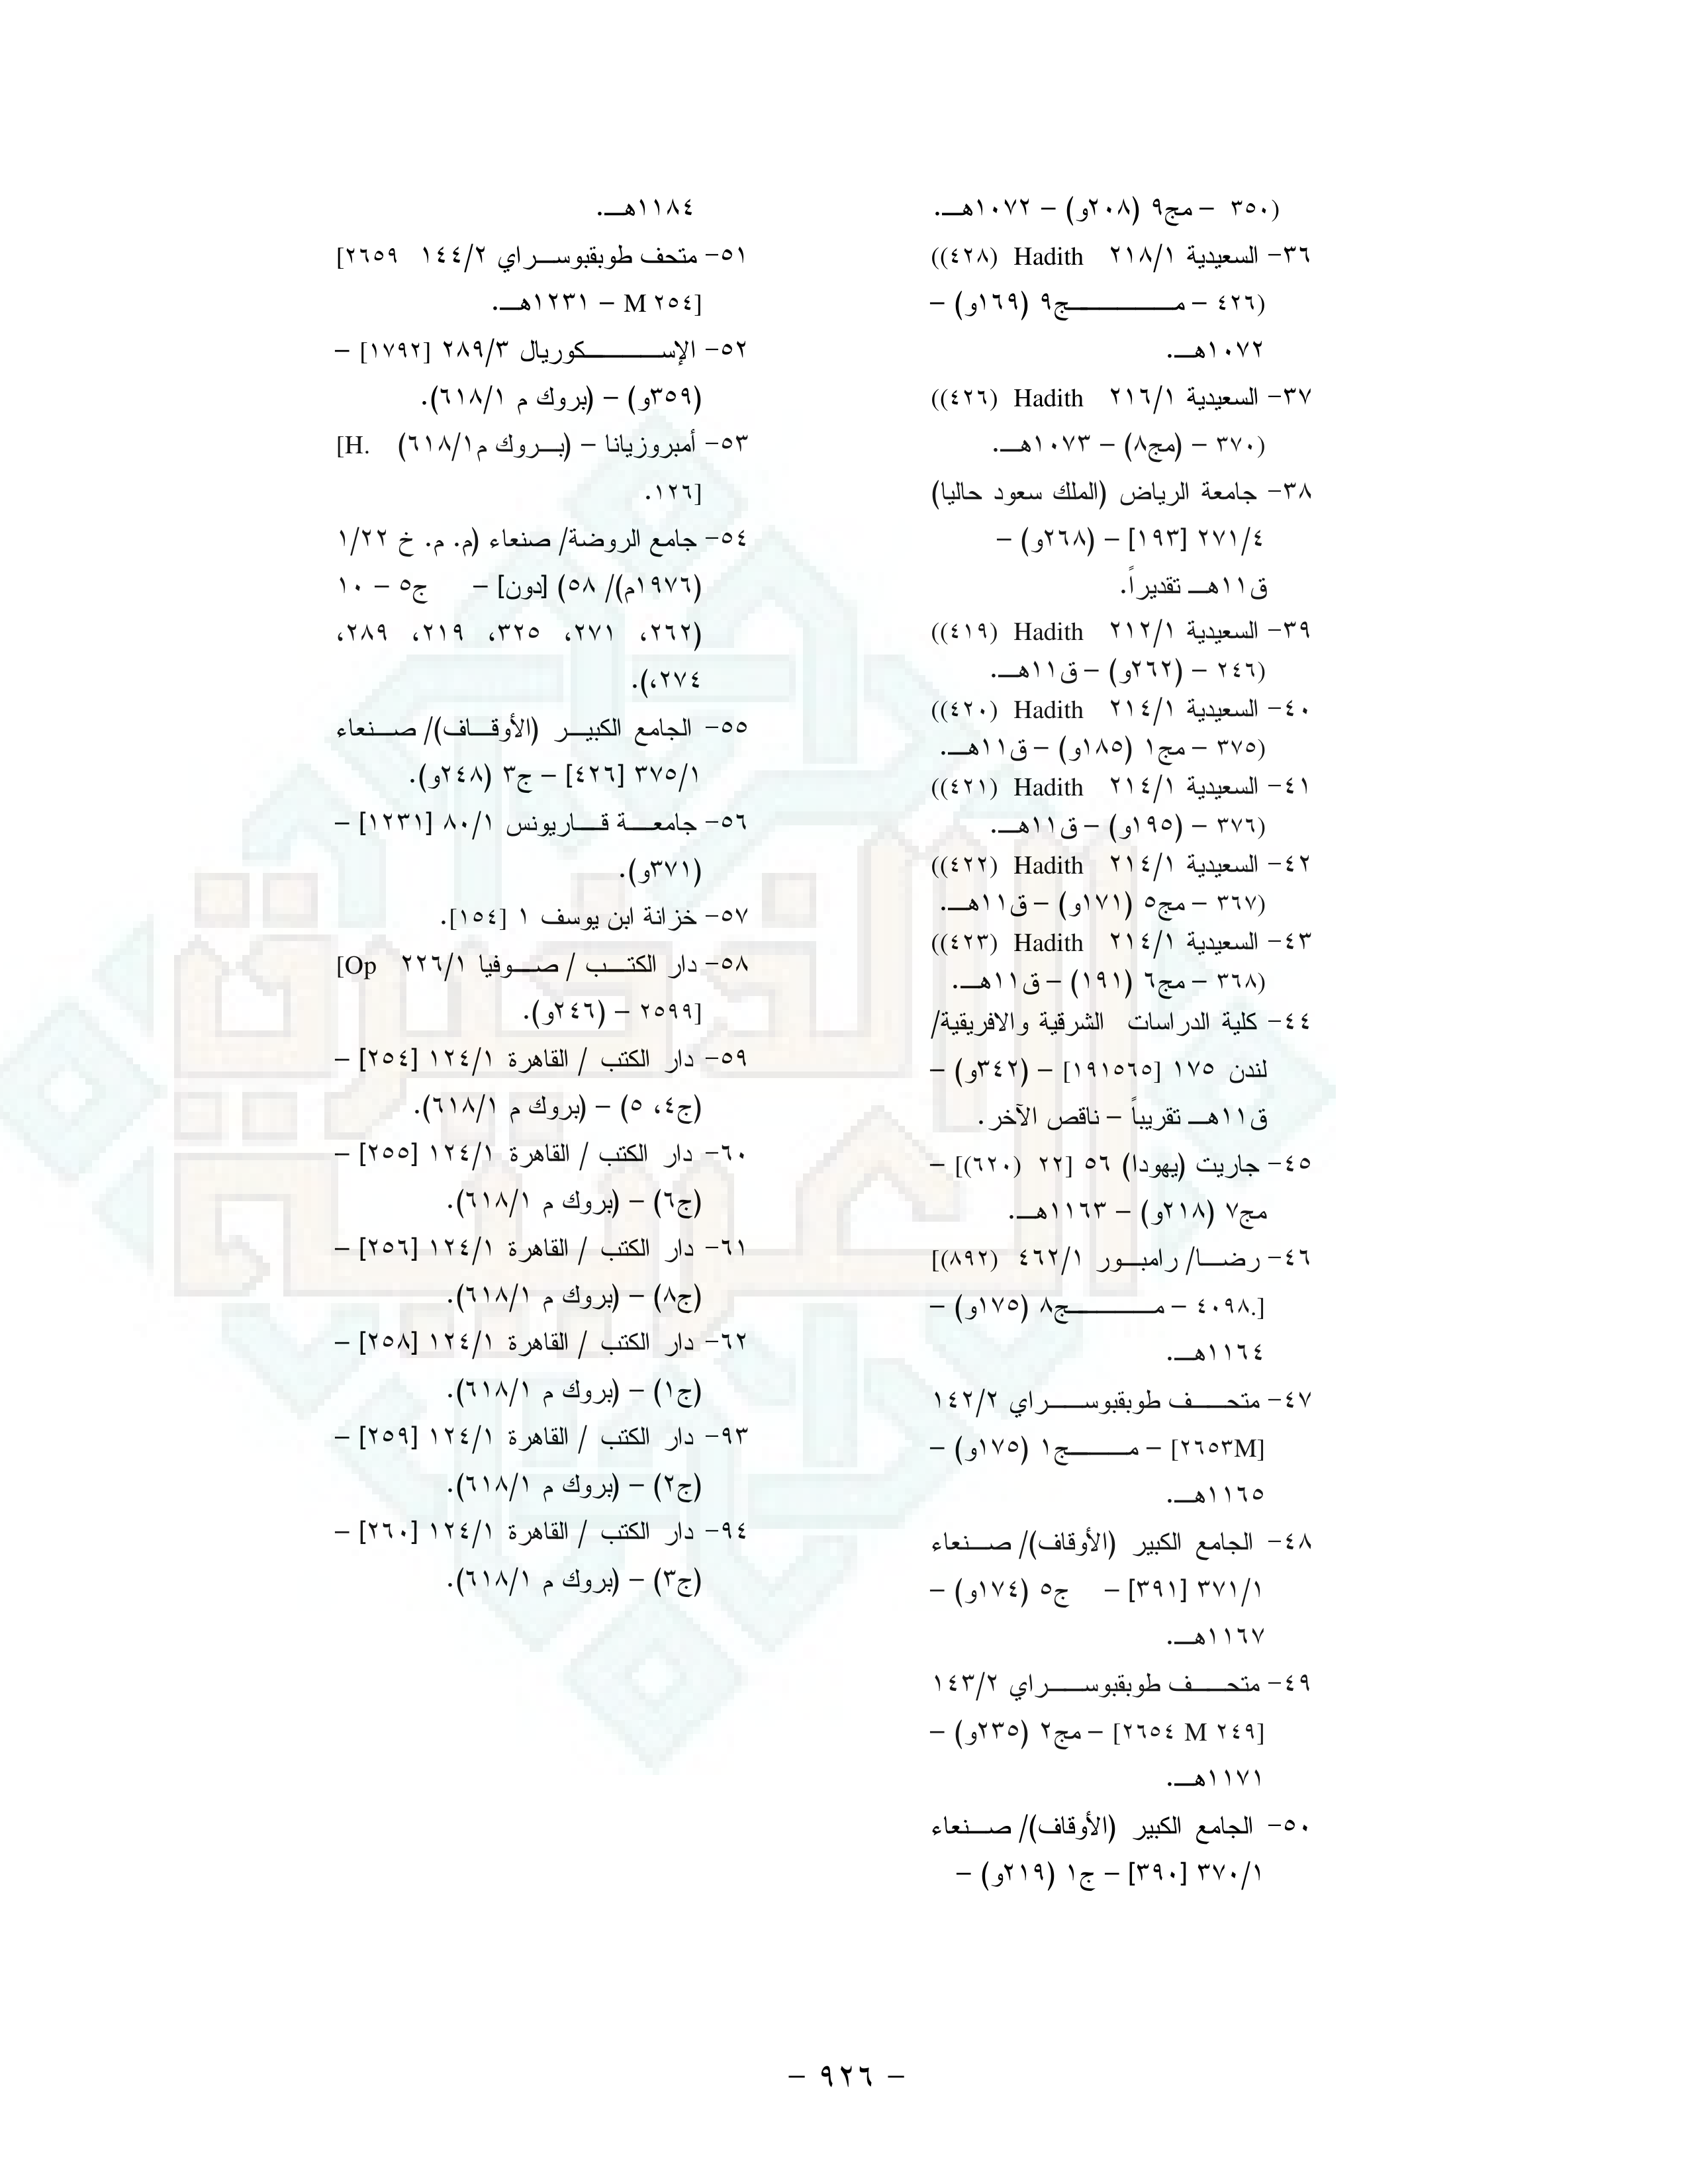 (٣٥٠ – مج٩ (٢٠٨و) – ١٠٧٢هـ.
٣٦- السعيدية ٢١٨/١ Hadith (٤٢٨))
(٤٢٦ – مج٩ (١٦٩و) –
١٠٧٢هـ.
٣٧- السعيدية ٢١٦/١ Hadith (٤٢٦))
(٣٧٠ – (مج٨) – ١٠٧٣هـ.
٣٨- جامعة الرياض (الملك سعود حاليا)
٢٧١/٤ [١٩٣] – (٢٦٨و) –
ق١١هـ تقديراً.
٣٩- السعيدية ٢١٢/١ Hadith (٤١٩))
(٢٤٦ – (٢٦٢و) – ق١١هـ.
٤٠- السعيدية ٢١٤/١ Hadith (٤٢٠))
(٣٧٥ – مج١ (١٨٥و) – ق١١هـ.
٤١- السعيدية ٢١٤/١ Hadith (٤٢١))
(٣٧٦ – (١٩٥و) – ق١١هـ.
٤٢- السعيدية ٢١٤/١ Hadith (٤٢٢))
(٣٦٧ – مج٥ (١٧١و) – ق١١هـ.
٤٣- السعيدية ٢١٤/١ Hadith (٤٢٣))
(٣٦٨ – مج٦ (١٩١) – ق١١هـ.
٤٤- كلية الدراسات الشرقية والافريقية/
لندن ١٧٥ [١٩١٥٦٥] – (٣٤٢و) –
ق١١هـ تقريباً – ناقص الآخر.
٤٥- جاريت (يهودا) ٥٦ [٢٢ (٦٢٠)] –
مج٧ (٢١٨و) – ١١٦٣هـ.
٤٦- رضا/ رامبور ٤٦٢/١ (٨٩٢)]
[.٤٠٩٨ – مج٨ (١٧٥و) –
١١٦٤هـ.
٤٧- متحف طوبقبوسراي ١٤٢/٢
[٢٦٥٣M] – مج١ (١٧٥و) –
١١٦٥هـ.
٤٨- الجامع الكبير (الأوقاف)/ صنعاء
٣٧١/١ [٣٩١] – ج٥ (١٧٤و) –
١١٦٧هـ.
٤٩- متحف طوبقبوسراي ١٤٣/٢
[٢٦٥٤ M ٢٤٩] – مج٢ (٢٣٥و) –
١١٧١هـ.
٥٠- الجامع الكبير (الأوقاف)/ صنعاء
٣٧٠/١ [٣٩٠] – ج١ (٢١٩و) –
١١٨٤هـ.
٥١- متحف طوبقبوسراي ١٤٤/٢ ٢٦٥٩]
[M ٢٥٤ – ١٢٣١هـ.
٥٢- الإسكوريال ٢٨٩/٣ [١٧٩٢] –
(٣٥٩و) – (بروك م ٦١٨/١).
٥٣- أمبروزيانا – (بروك م٦١٨/١) H.]
[١٢٦.
٥٤- جامع الروضة/ صنعاء (م. م. خ ١/٢٢
(١٩٧٦م)/ ٥٨) [دون] – ج٥ – ١٠
(٢٦٢، ٢٧١، ٣٢٥، ٢١٩، ٢٨٩،
٢٧٤،).
٥٥- الجامع الكبير (الأوقاف)/ صنعاء
٣٧٥/١ [٤٢٦] – ج٣ (٢٤٨و).
٥٦- جامعة قاريونس ٨٠/١ [١٢٣١] –
(٣٧١و).
٥٧- خزانة ابن يوسف ١ [١٥٤].
٥٨- دار الكتب / صوفيا ٢٢٦/١ Op]
[٢٥٩٩ – (٢٤٦و).
٥٩- دار الكتب / القاهرة ١٢٤/١ [٢٥٤] –
(ج٤، ٥) – (بروك م ٦١٨/١).
٦٠- دار الكتب / القاهرة ١٢٤/١ [٢٥٥] –
(ج٦) – (بروك م ٦١٨/١).
٦١- دار الكتب / القاهرة ١٢٤/١ [٢٥٦] –
(ج٨) – (بروك م ٦١٨/١).
٦٢- دار الكتب / القاهرة ١٢٤/١ [٢٥٨] –
(ج١) – (بروك م ٦١٨/١).
٩٣- دار الكتب / القاهرة ١٢٤/١ [٢٥٩] –
(ج٢) – (بروك م ٦١٨/١).
٩٤- دار الكتب / القاهرة ١٢٤/١ [٢٦٠] –
(ج٣) – (بروك م ٦١٨/١).
– ٩٢٦ –